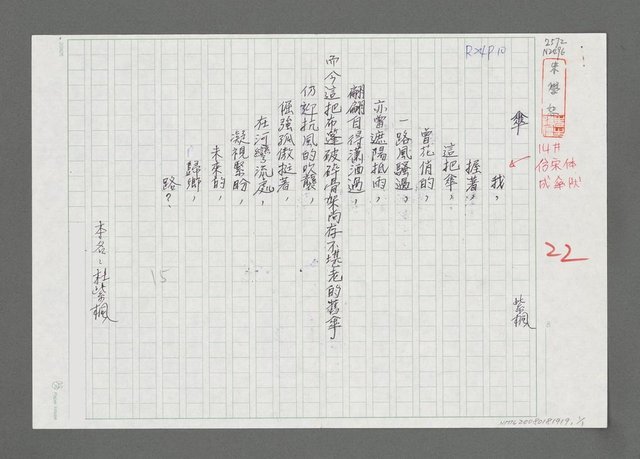 R24P10
2572
傘
14#
仿宋体
22
紫楓
我，
握著，
這把傘，
曾花俏的，
一路風騷過。
亦曾遮陽抵雨，
翩翩自得瀟洒過，
而今這把布蓬破碎骨架尚存不堪老的舊傘
仍迎抗風的吹襲，
倔強孤傲挺著，
在河彎流處，
凝視緊盼，
未來的，
歸鄉，
路？
本名：杜紫楓
15
NMTL20080181919, 1/1